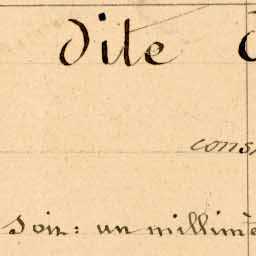 dite
cons
Soit: un millimè